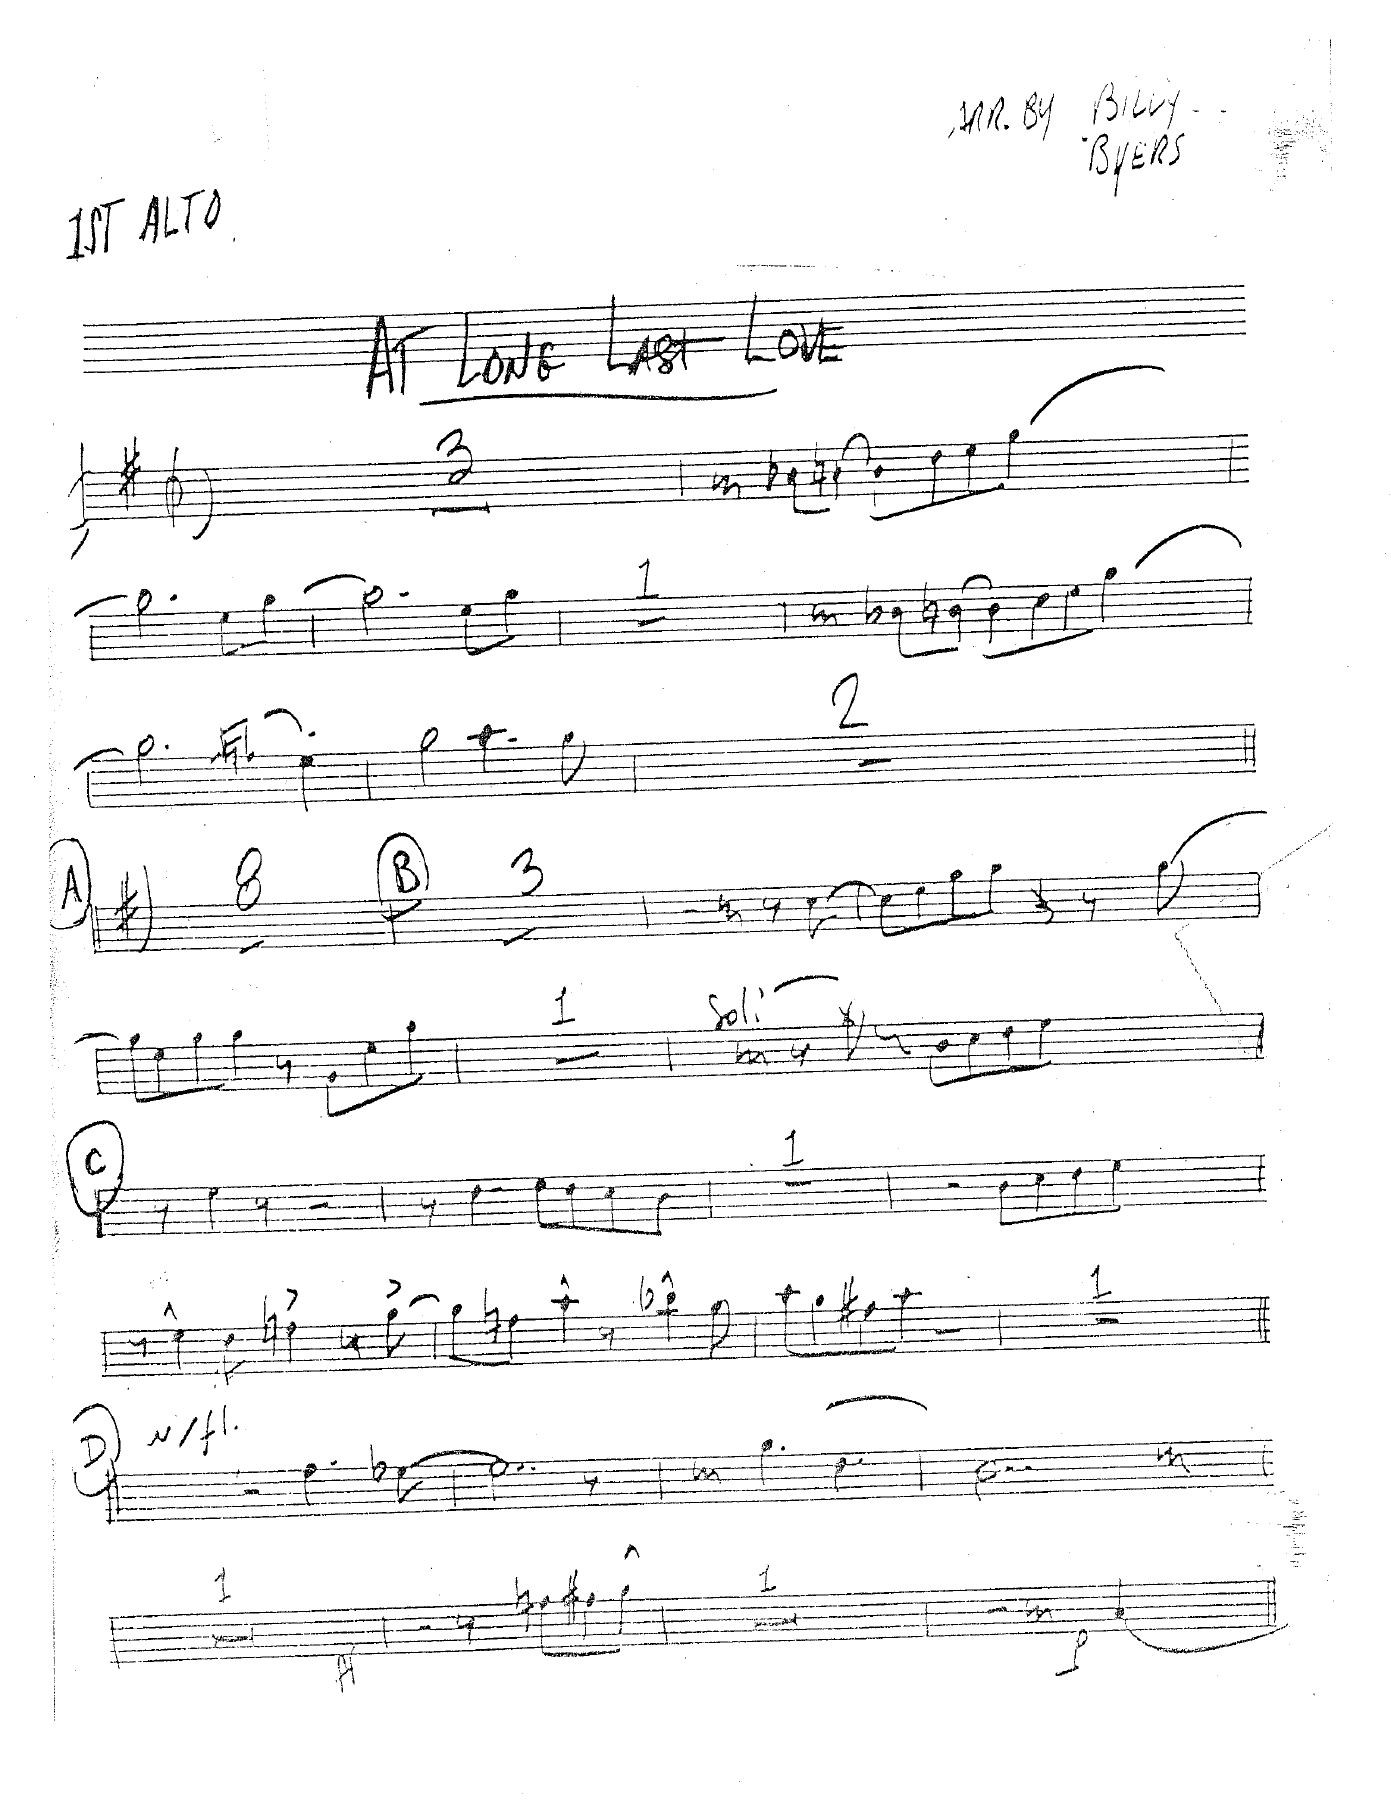 ARR. BY BILLY
BYERS
1ST ALTO
AT LONG LAST LOVE
3
1
2
A 8 B 3
1 Soli
C 1
1
D w/fl.
1 1
P